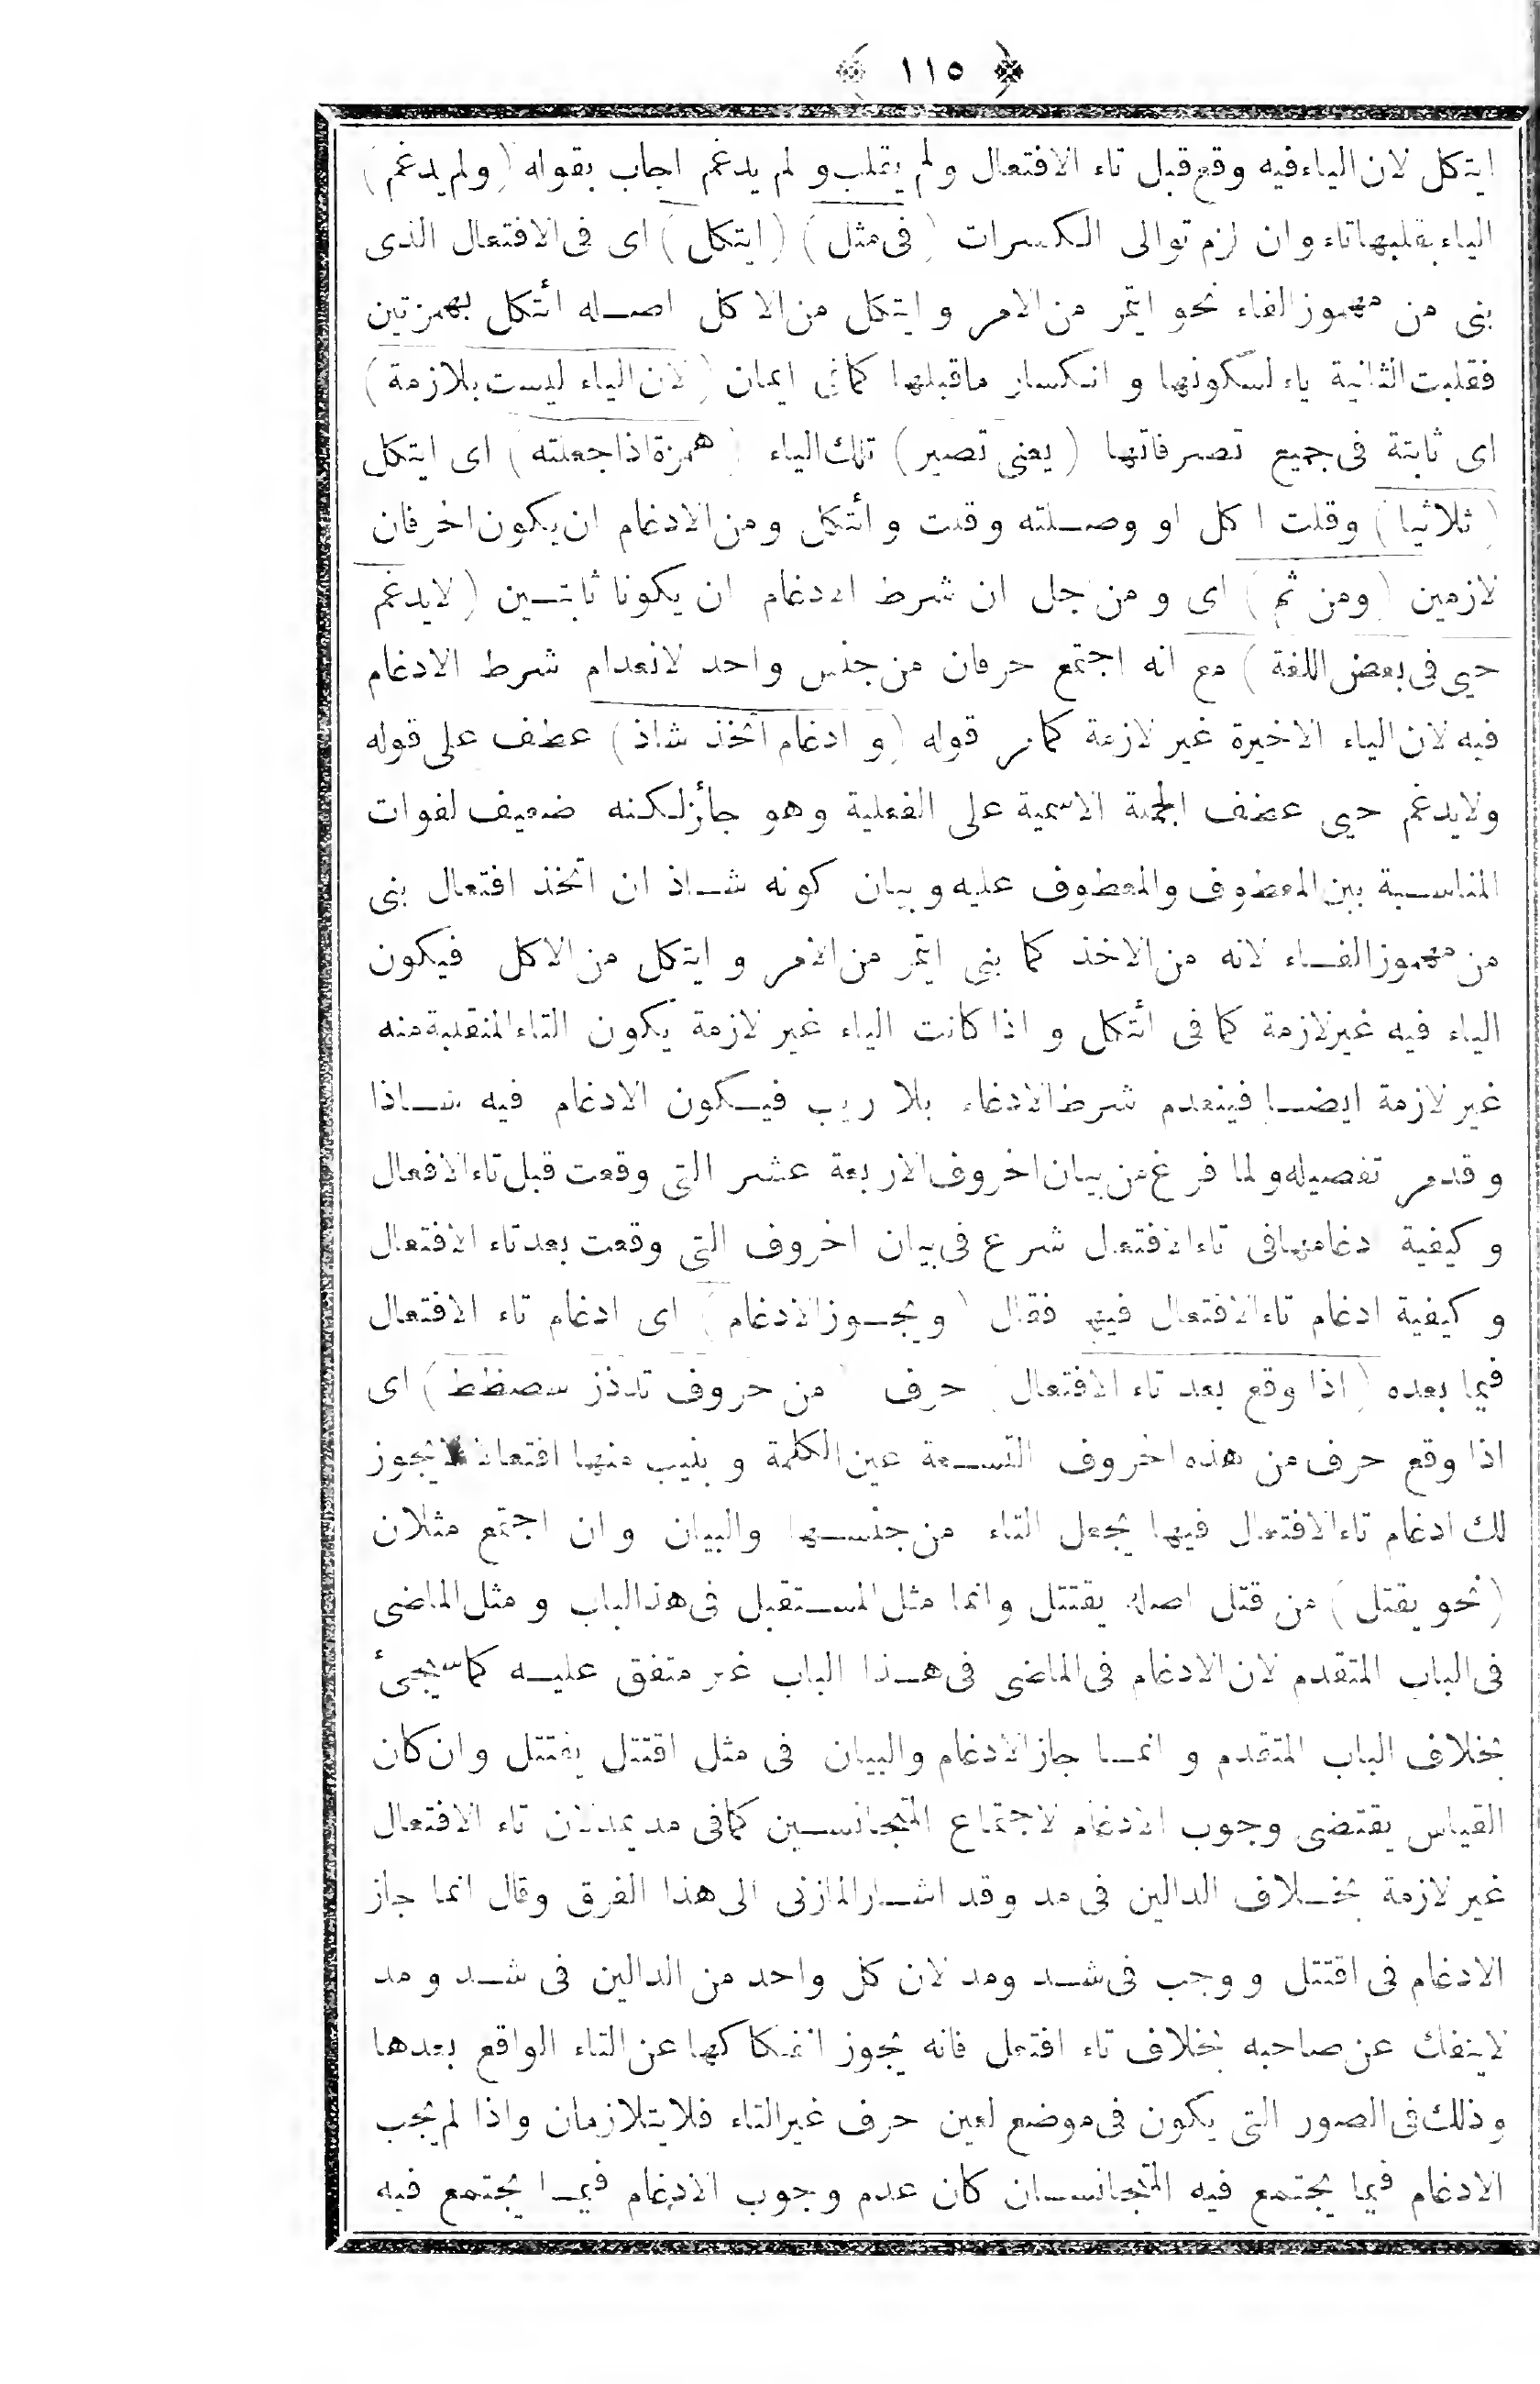 ﴿ ١١٥ ﴾
ايتكل لان الياء فيه وقع قبل تاء الافتعال ولم يقلب و لم يدغم اجاب بقوله (ولم يدغم)
الياء بقلبها تاء و ان لزم توالى الكسرات (فى مثل) (ايتكل) اى فى الافتعال الذى
بنى من مهموز الفاء نحو ايتمر من الامر و ايتكل من الاكل اصله ائتكل بهمزتين
فقلبت الثانية ياء لسكونها و انكسار ماقبلها كمافى ايمان (لان الياء ليست بلازمة)
اى ثابتة فى جميع تصرفاتها (يعنى تصير) تلك الياء (همزة اذا جعلته) اى ايتكل
(ثلاثيا) وقلت اكل او وصلته وقلت و أتكل ومن الادغام ان يكون الحرفان
لازمين (ومن ثم) اى و من اجل ان شرط الادغام ان يكونا ثابتين (لايدغم
حيى فى بعض اللغة) مع انه اجتمع حرفان من جنس واحد لانعدام شرط الادغام
فيه لان الياء الاخيرة غير لازمة كمامر قوله (و ادغام اتخذ شاذ) عطف على قوله
ولايدغم حيى عطف الجملة الاسمية على الفعلية وهو جائز لكنه ضعيف لفوات
المناسبة بين المعطوف والمعطوف عليه و بيان كونه شاذ ان اتخذ افتعال بنى
من مهموز الفاء لانه من الاخذ كما بنى ايتمر من الامر و ايتكل من الاكل فيكون
الياء فيه غير لازمة كما فى ائتكل و اذا كانت الياء غير لازمة يكون التاء المنقلبة منه
غير لازمة ايضا فينعدم شرط الادغام بلا ريب فيكون الادغام فيه شاذا
و قدمر تفصيله ولما فرغ من بيان الحروف الاربعة عشر التى وقعت قبل تاء الافعال
و كيفية ادغامها فى تاء الافتعال شرع فى بيان الحروف التى وقعت بعد تاء الافتعال
و كيفية ادغام تاء الافتعال فيها فقال (ويجوز الادغام) اى ادغام تاء الافتعال
فيما بعده (اذا وقع بعد تاء الافتعال) حرف (من حروف تدذز سصضطظ) اى
اذا وقع حرف من هذه الحروف التسعة عين الكلمة و بنيت منها افتعالا يجوز
لك ادغام تاء الافتعال فيها يجعل التاء من جنسها والبيان و ان اجتمع مثلان
(نحو يقتل) من قتل اصله يقتتل وانما مثل المستقبل فى هذا الباب و مثل الماضى
فى الباب المتقدم لان الادغام فى الماضى فى هذا الباب غير متفق عليه كما سيجئ
بخلاف الباب المتقدم و انما جاز الادغام والبيان فى مثل اقتتل يقتتل و ان كان
القياس يقتضى وجوب الادغام لاجتماع المتجانسين كمافى مد يمد لان تاء الافتعال
غير لازمة بخلاف الدالين فى مد وقد اشار المازنى الى هذا الفرق وقال انما جاز
الادغام فى اقتتل و وجب فى شد ومد لان كل واحد من الدالين فى شد و مد
لاينفك عن صاحبه بخلاف تاء افتعل فانه يجوز انفكاكها عن التاء الواقع بعدها
وذلك فى الصور التى يكون فى موضع لعين حرف غير التاء فلايتلازمان واذا لم يجب
الادغام فيما يجتمع فيه المتجانسان كان عدم وجوب الادغام فيما يجتمع فيه